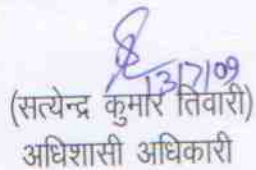 13/7/09
(सत्येन्द्र कुमार तिवारी)
अधिशासी अधिकारी